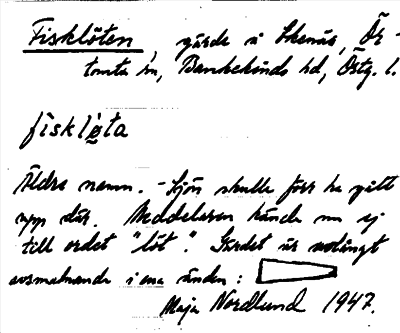 Fisklöten, gärde i Skenäs, Ör-
tomta sn, Bankekinds hd, Östg. l.
fiskløta
Äldre namn. – Sjön skulle förr ha gått
upp där. Meddelaren kände nu ej
till ordet "löt". Gärdet är avlångt
avsmalnande i ena änden:
Maja Nordlund 1947.